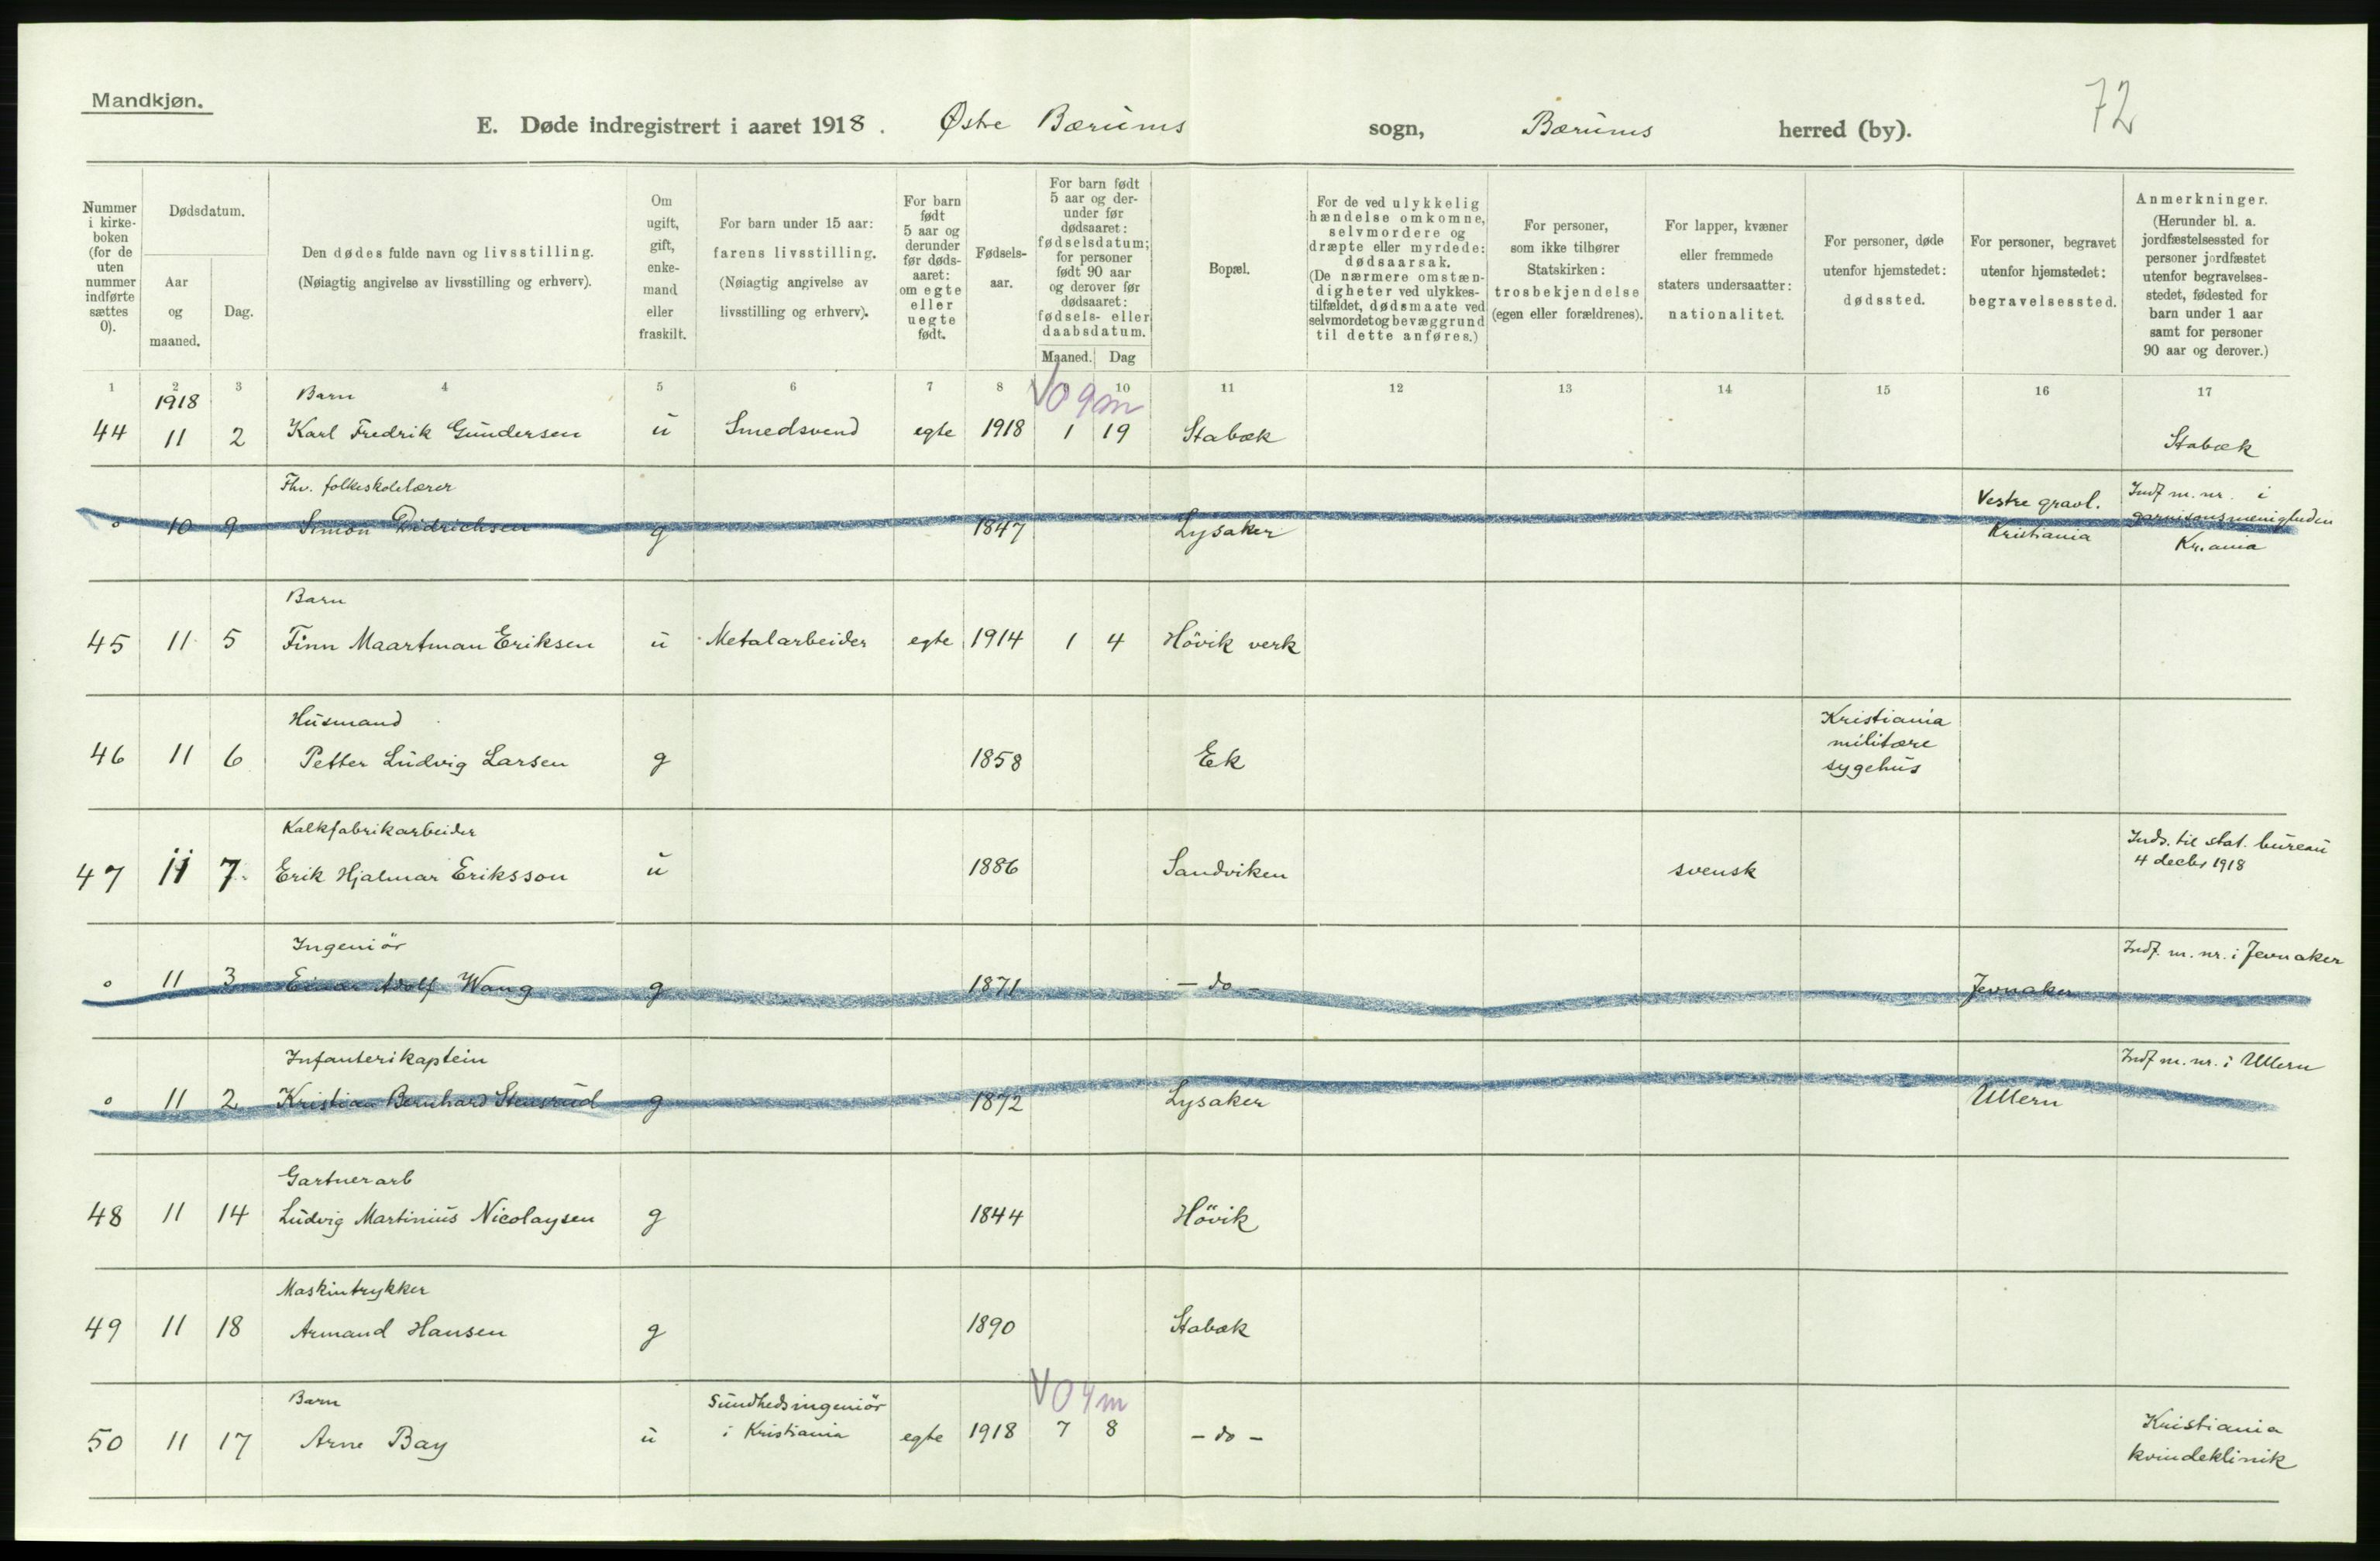 Mandkjøn.
E. Døde indregistrert i aaret 1918. Østre Bærums sogn, Bærums herred (by). 72
Nummer i kirke-boken (for de uten nummer indførte sættes 0).
Dødsdatum.
Aar og maaned.
Dag.
Den dødes fulde navn og livsstilling.
(Nøiagtig angivelse av livsstilling og erhverv).
Om ugift, gift, enke-mand eller fraskilt.
For barn under 15 aar: farens livsstilling.
(Nøiagtig angivelse av livsstilling og erhverv).
For barn født 5 aar og derunder før døds-aaret: om egte eller uegte født.
Fødsels-aar.
For barn født 5 aar og der-under før dødsaaret: fødselsdatum; for personer født 90 aar og derover før dødsaaret: fødsels- eller daabsdatum.
Maaned. Dag
Bopæl.
For de ved ulykkelig hændelse omkomne, selvmordere og dræpte eller myrdede: dødsaarsak.
(De nærmere omstæn-digheter ved ulykkes-tilfældet, dødsmaate ved selvmordet og bevæggrund til dette anføres.)
For personer, som ikke tilhører Statskirken: trosbekjendelse (egen eller forældrenes).
For lapper, kvæner eller fremmede staters undersaatter: nationalitet.
For personer, døde utenfor hjemstedet: dødssted.
For personer, begravet utenfor hjemstedet: begravelsessted.
Anmerkninger.
(Herunder bl. a. jordfæstelsessted for personer jordfæstet utenfor begravelses-stedet, fødested for barn under 1 aar samt for personer 90 aar og derover.)
1 2 3 4 5 6 7 8 10 11 12 13 14 15 16 17
1918 Barn V0 9m
44 11 2 Karl Fredrik Gundersen u Smedsvend egte 1918 1 19 Stabæk Stabæk
Fhv. folkeskolelærer Vestre gravl. Indf m. nr. i
0 10 9 Simon Didrichsen g 1847 Lysaker Kristiania garnisonsmenigheden
Kr.ania
Barn
45 11 5 Finn Maartman Eriksen u Metalarbeider egte 1914 1 4 Hövik verk
Husmand Kristiania
militære
46 11 6 Petter Ludvig Larsen g 1858 Ek sygehus
Kalkfabrikarbeider Inds. til stat. bureau
47 11 7 Erik Hjalmar Eriksson u 1886 Sandviken svensk 4 decbr 1918
Ingeniör Indf. m. nr. i Jevnaker
0 11 3 Einar Adolf Wang g 1871 - do - Jevnaker
Infanterikaptein Indf m. nr. i Ullern
0 11 2 Kristian Bernhard Stensrud g 1872 Lysaker Ullern
Gartnerarb
48 11 14 Ludvig Martinius Nicolaysen g 1844 Hövik
Maskintrykker
49 11 18 Armand Hansen g 1890 Stabæk
Barn Sundhedsingeniör V0 4m
50 11 17 Arne Bay u i Kristiania egte 1918 7 8 - do - Kristiania
kvindeklinik